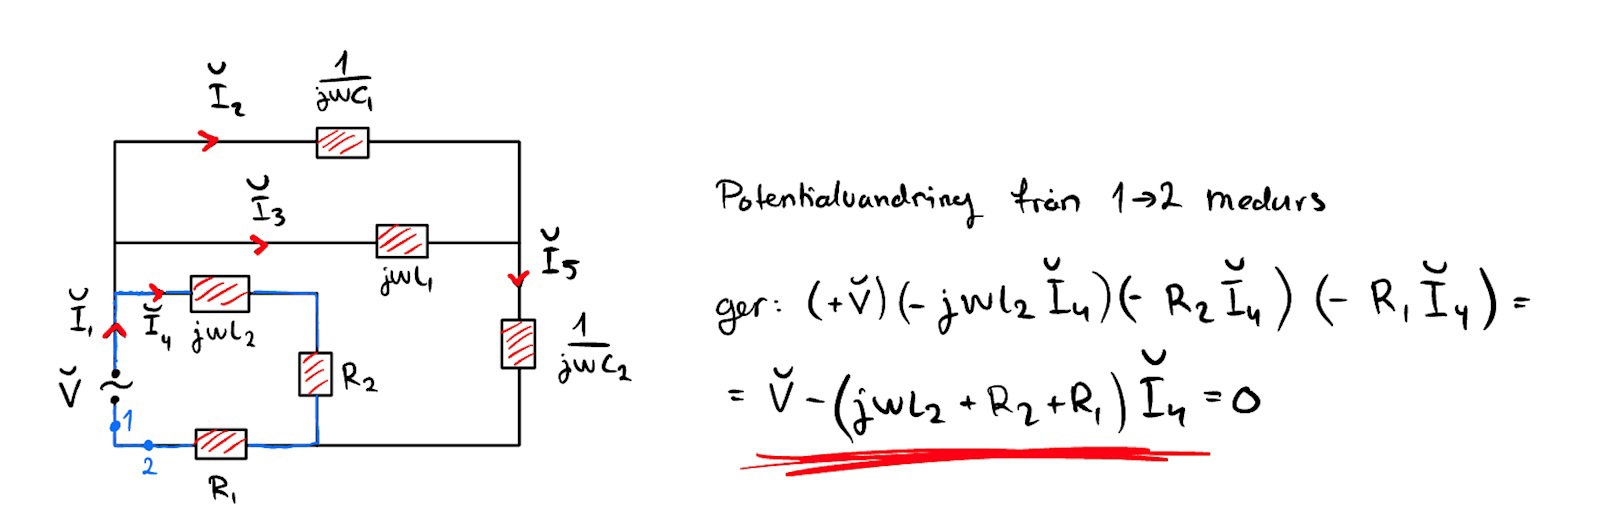 Ĭ₂
1/jωC₁
Ĭ₃
jωL₁
Ĭ₅
Ĭ₁
Ĭ₄
jωL₂
1/jωC₂
V̆
~
R₂
1
2
R₁
Potentialvandring från 1→2 medurs
ger: (+V̆)(-jωL₂Ĭ₄)(-R₂Ĭ₄)(-R₁Ĭ₄) =
= V̆-(jωL₂+R₂+R₁)Ĭ₄ = 0